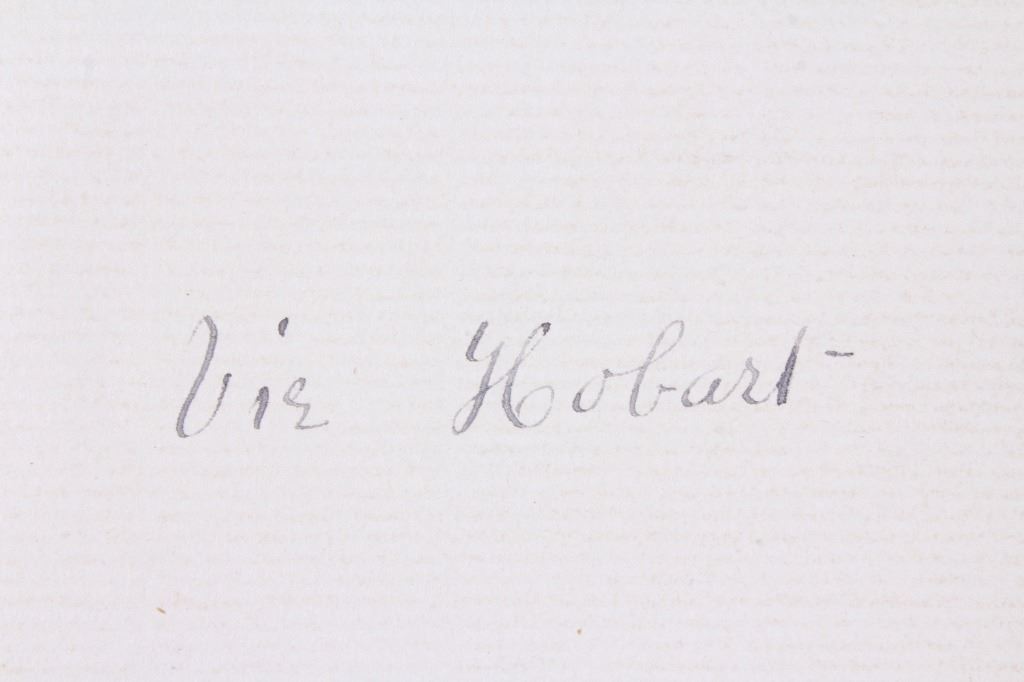 Vie Hobart